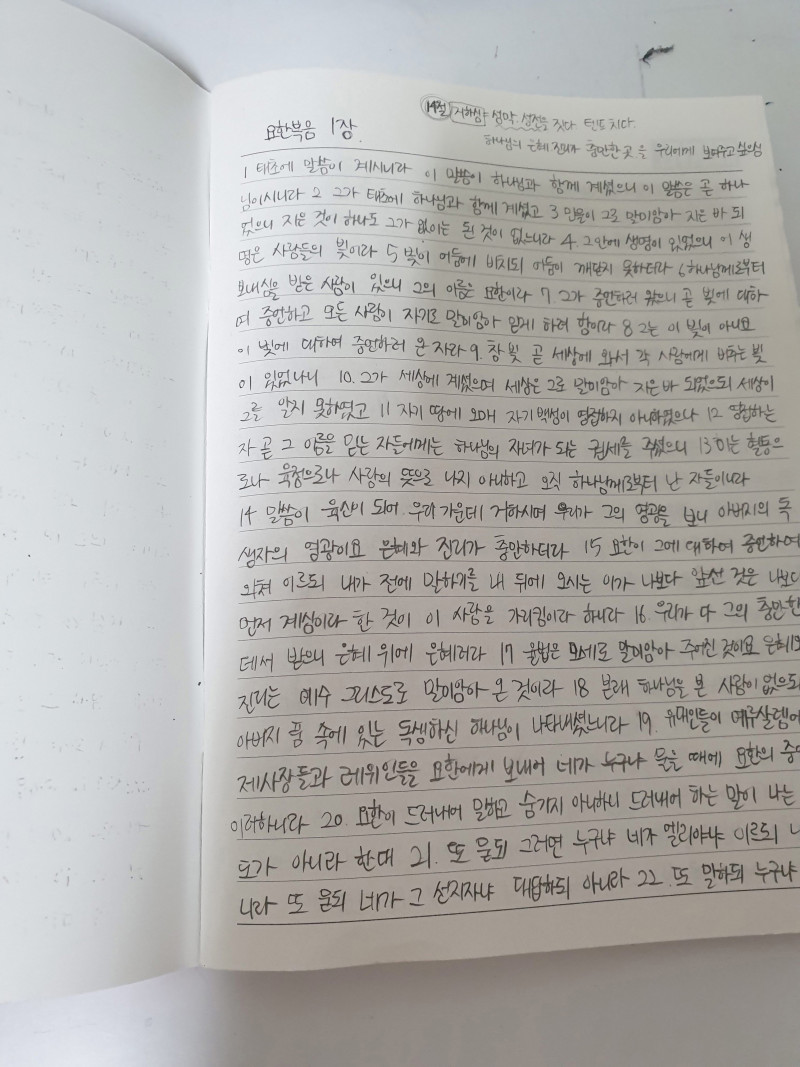 14절 거하심 성막. 성전을 짓다. 텐트치다.
하나님의 은혜 진리가 충만한 곳을 우리에게 보여주고싶으심
요한복음 1장.
1 태초에 말씀이 계시니라 이 말씀이 하나님과 함께 계셨으니 이 말씀은 곧 하나
님이시니라 2 그가 태초에 하나님과 함께 계셨고 3 만물이 그로 말미암아 지은 바 되
었으니 지은 것이 하나도 그가 없이는 된 것이 없느니라 4. 그 안에 생명이 있었으니 이 생
명은 사람들의 빛이라 5 빛이 어둠에 비치되 어둠이 깨닫지 못하더라 6 하나님께로부터
보내심을 받은 사람이 있으니 그의 이름은 요한이라 7 그가 증언하러 왔으니 곧 빛에 대하
여 증언하고 모든 사람이 자기로 말미암아 믿게 하려 함이라 8 그는 이 빛이 아니요
이 빛에 대하여 증언하러 온 자라 9. 참 빛 곧 세상에 와서 각 사람에게 비추는 빛
이 있었나니 10. 그가 세상에 계셨으며 세상은 그로 말미암아 지은 바 되었으되 세상이
그를 알지 못하였고 11 자기 땅에 오매 자기 백성이 영접하지 아니하였으나 12 영접하는
자 곧 그 이름을 믿는 자들에게는 하나님의 자녀가 되는 권세를 주셨으니 13 이는 혈통으
로나 육정으로나 사람의 뜻으로 나지 아니하고 오직 하나님께로부터 난 자들이니라
14 말씀이 육신이 되어 우리 가운데 거하시매 우리가 그의 영광을 보니 아버지의 독
생자의 영광이요 은혜와 진리가 충만하더라 15 요한이 그에 대하여 증언하여
외쳐 이르되 내가 전에 말하기를 내 뒤에 오시는 이가 나보다 앞선 것은 나보다
먼저 계심이라 한 것이 이 사람을 가리킴이라 하니라 16. 우리가 다 그의 충만한
데서 받으니 은혜 위에 은혜러라 17 율법은 모세로 말미암아 주어진 것이요 은혜와
진리는 예수 그리스도로 말미암아 온 것이라 18 본래 하나님을 본 사람이 없으되
아버지 품 속에 있는 독생하신 하나님이 나타내셨느니라 19. 유대인들이 예루살렘에
제사장들과 레위인들을 요한에게 보내어 네가 누구냐 물을 때에 요한의 증
이러하니라 20. 요한이 드러내어 말하고 숨기지 아니하니 드러내어 하는 말이 나는
도가 아니라 한대 21. 또 묻되 그러면 누구냐 네가 엘리야냐 이르되 나
니라 또 묻되 네가 그 선지자냐 대답하되 아니라 22. 또 말하되 누구냐